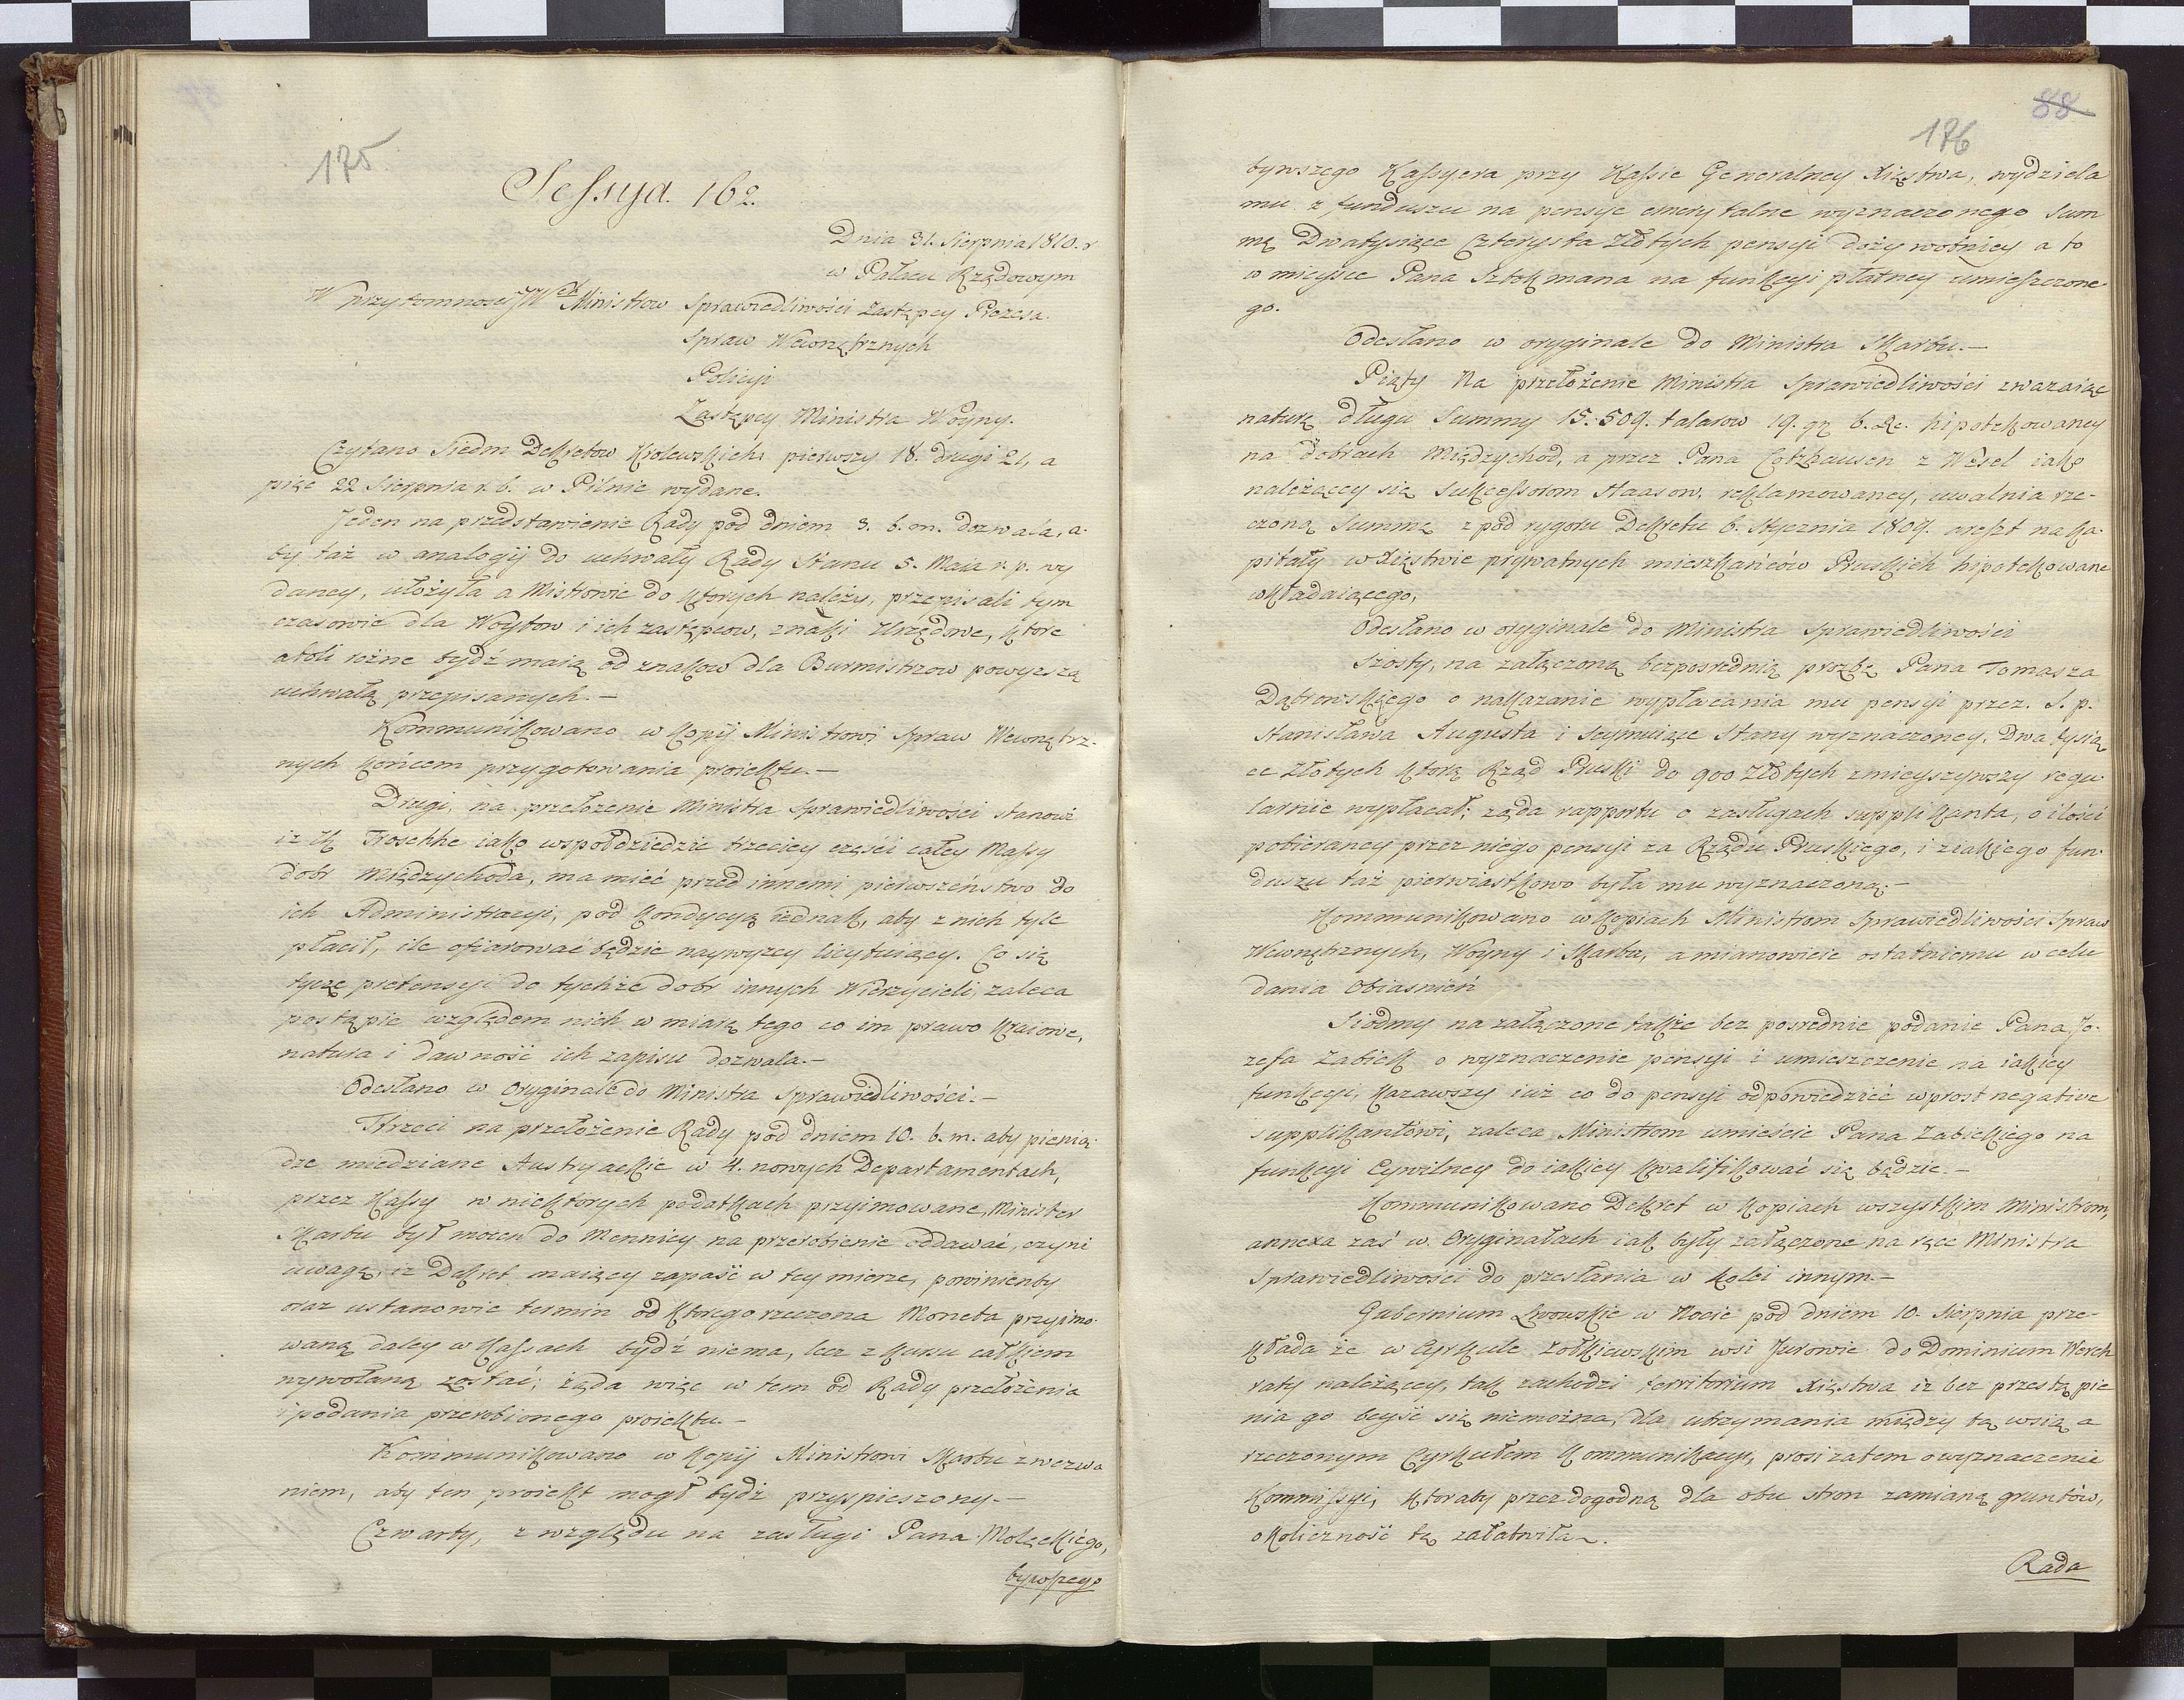 175
Sessya. 162.
Dnia 31. Sierpnia 1810. r
w Pałacu Rządowym
W przytomności JWch Ministrow Sprawiedliwości Zastępcy Prezesa.
Spraw Wewnętrznych
Policyi
Zastępcy Ministra Woyny.
Czytano Siedm Dekretow Krolewskich: pierwszy 18. drugi 21, a
pięć 22 Sierpnia r. b. w Pilnic wydane.
Jeden na przedstawienie Rady pod dniem 3. b. m. dozwala, a-
by taż w analogij do uchwały Rady Stanu 5. Maia r. p. wy
daney, ułożyła a Mistrowie do ktorych należy, przepisali tym
czasowie dla Woytow i ich zastępcow, znaki Urzędowe, ktore
atoli rożne bydź maią od znakow dla Burmistrzow powyższą
uchwałą przepisanych.-
Kommunikowano w kopij Ministrowi Spraw Wewnętrz-
nych końcem przygotowania proiektu.-
Drugi, na przełożenie Ministra Sprawiedliwości stanowi
iż Troschke iako wspołdziedzic trzeciey części całey Massy
dobr Międzychoda, ma mieć przed innemi pierwszeństwo do
ich Administracyi, pod kondycyą iednak, aby z nich tyle
płacił, ile ofiarować będzie naywyżey licytuiący. Co się
tycze pretensyi do tychże dobr innych Wierzycieli, zaleca
postąpic względem nich w miarę tego co im prawo kraiowe,
natura i dawność ich zapisu dozwala.-
Odesłano w Oryginale do Ministra Sprawiedliwości.-
Trzeci na przełożenie Rady pod dniem 10. b. m. aby pienią-
dze miedziane Austryackie w 4. nowych Departamentach,
przez Kassy w niektorych podatkach przyimowane, Minister
Skarbu był mocen do Mennicy na przerobienie oddawać, czyni
uwagę, iż Dekret maiący zapaść w tey mierze, powinienby
oraz ustanowic termin od ktorego rzeczona Moneta przyimo-
waną daley w Kassach bydź niema, lecz z kursu całkiem
wywołaną zostać; żąda więc w tem od Rady przełożenia
i podania przerobionego proiektu.-
Kommunikowano w kopij Ministrowi Skarbu z wezwa
niem, aby ten proiekt mogł bydź przyspieszony.-
Czwarty, z względu na zasługi Pana Molęckiego,
bywszego
88
176
bywszego Kassyera przy Kassie Generalney Xięstwa, wydziela
mu z funduszu na pensye emerytalne wyznaczonego Sum
mę Dwatysiące Czterysta Złotych pensyi dożywotniey a to
w mieysce Pana Sztokmana na funkcyi płatney umieszczone-
go.
Odesłano w oryginale do Ministra Skarbu.-
Piąty Na przełożenie Ministra Sprawiedliwości zważaiąc
naturę długu Summy 15.509. talarow 19. gr 6. hipotekowaney
na dobrach Międzychod, a przez Pana Cotzhausen z Wesel iako
należącey się Sukcessorom Haasow, reklamowaney, uwalnia rze-
czoną Summę z pod rygoru Dekretu 6. Stycznia 1809. areszt na ka-
pitały w Xięstwie prywatnych mieszkańców Pruskich hipotekowane
wkładaiącego,
Odesłano w oryginale do Ministra Sprawiedliwości
Szosty, na załączoną bezposrednią prozbę Pana Tomasza
Dąbrowskiego o nakazanie wypłacania mu pensyi przez. S. p.
Stanisława Augusta i Seymuiące Stany wyznaczoney, Dwa tysią
ce Złotych ktorą Rząd Pruski do 900 Złotych zmieyszywszy regu
larnie wypłacał; żąda rapportu o zasługach supplikanta, o ilości
pobieraney przez niego pensyi za Rządu Pruskiego, i z iakiego fun-
duszu taż pierwiastkowo była mu wyznaczoną.-
Kommunikowano w kopiach Ministrom Sprawiedliwości Spraw
Wewnętrznych, Woyny i Skarbu, a mianowicie ostatniemu w celu
dania Obiasnień
Siodmy na załączone także bez posrednie podanie Pana Jo-
zefa Zabiełł o wyznaczenie pensyi i umieszczenie na iakiey
funkcyi, kazawszy iuż co do pensyi odpowiedzieć wprost negative
supplikantówi, zaleca Ministrom umieścic Pana Zabielkiego na
funkcyi Cywilney do iakiey kwalifikować się będzie.-
Kommunikowano Dekret w kopiach wszystkim Ministrom,
annexa zaś w. Oryginałach iak były załączone na ręce Ministra
Sprawiedliwości do przesłania w kolei innym.-
Gubernium Lwowskie w Nocie pod dniem 10. Sierpnia prze-
kłada że w Cyrkule Żołkiewskim wsi Jurowie do Dominium Werch
raty należącey, tak zachodzi territorium Xięstwa iż bez przestąpie
nia go beyść się niemożna, dla utrzymania między tą wsią a
rzeczonym Cyrkułem Kommunikacyi, prosi zatem o wyznaczenie
Kommissyi, ktoraby przez dogodną dla obu stron zamianę gruntów,
okoliczność tę załatwiła.
Rada